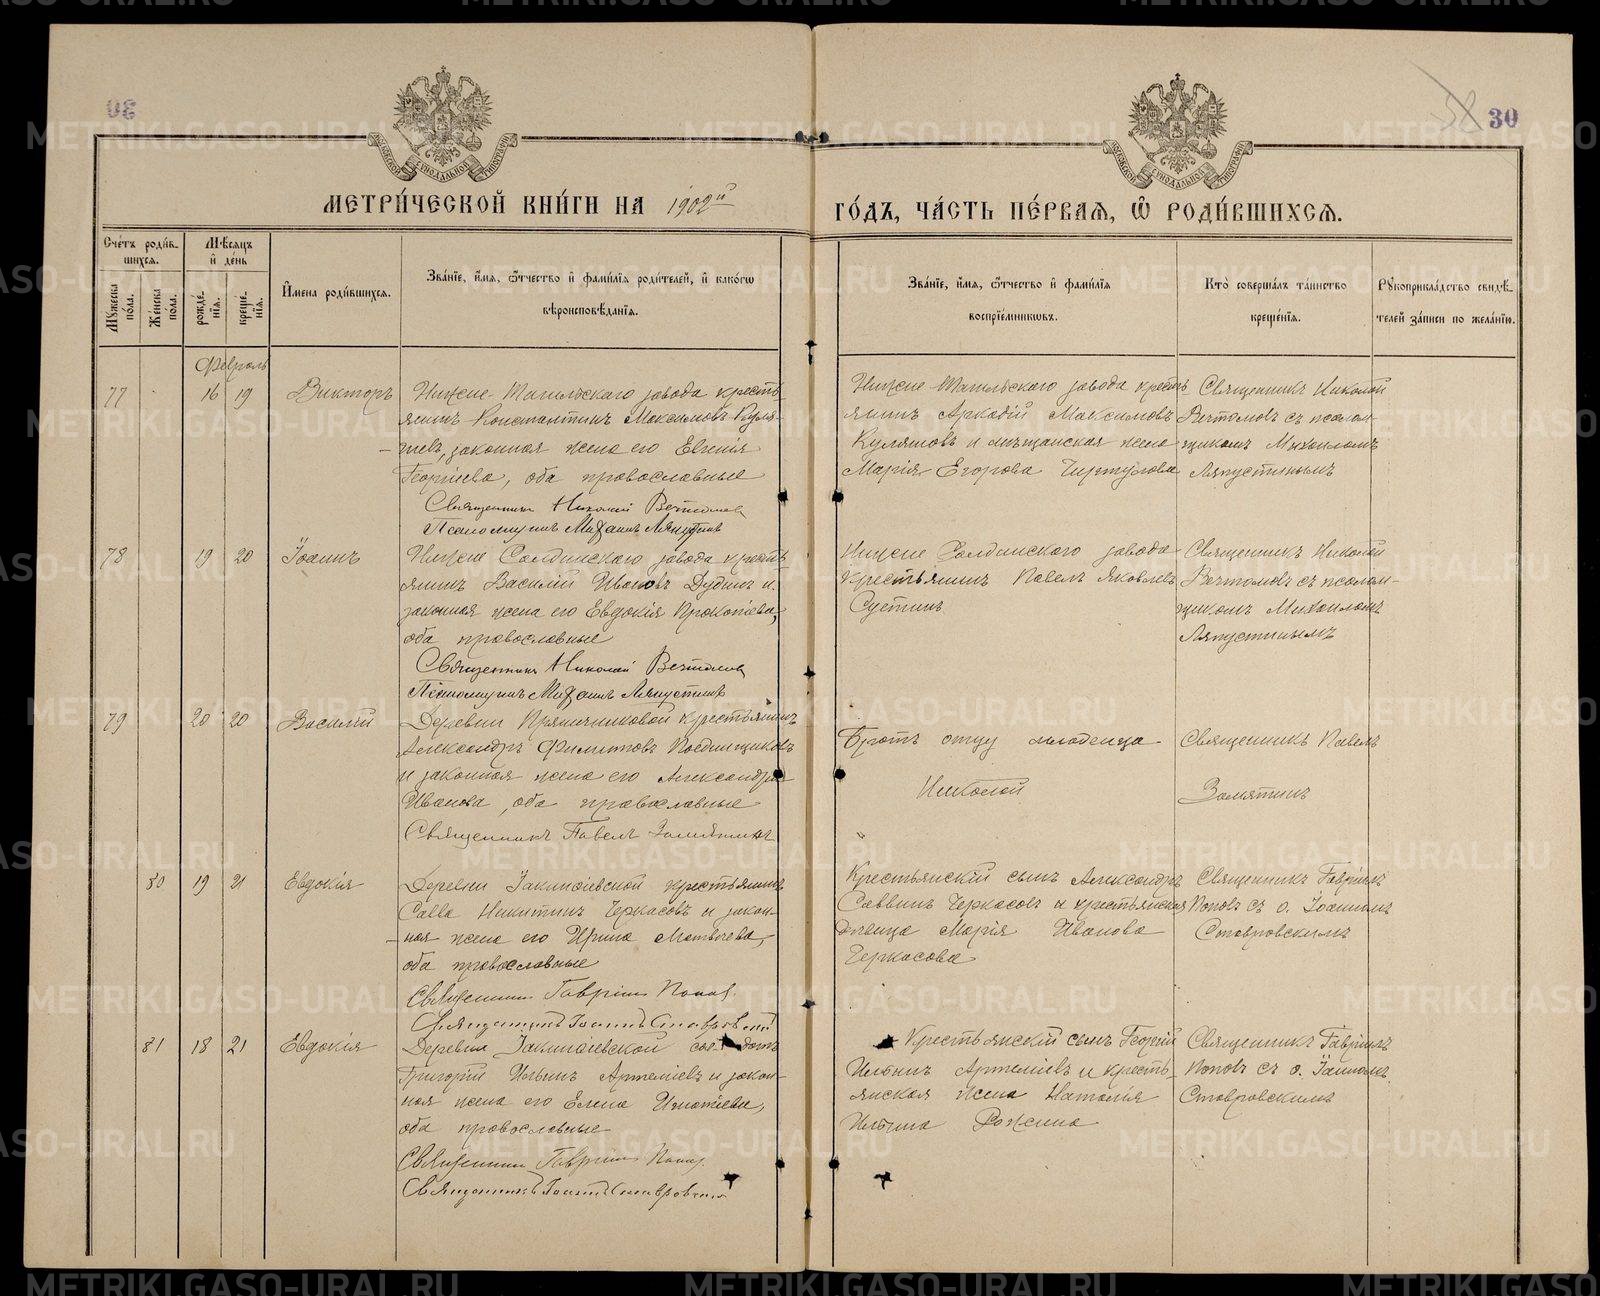 30
30
МОСКОВСКОЙ СУНОДАЛЬНОЙ ТИПОГРАФІИ
МОСКОВСКОЙ СУНОДАЛЬНОЙ ТИПОГРАФІИ
МЕТРИ́ЧЕСКОЙ КНИ́ГИ НА 1902й
ГО́ДЪ, ЧА́СТЬ ПЕ́РВАѦ, Ѡ҆ РОДИ́ВШИХСѦ.
Сче́тъ роди́в-
шихсѧ.
Мꙋжеска по́ла.
Же́нска по́ла.
Мѣ́сѧцъ и҆ де́нь
рожде́-
нїѧ.
креще́-
нїѧ.
И҆мена роди́вшихсѧ.
Зва́нїе, и҆́мѧ, ѻ҆́тчество и҆ фами́лїѧ роди́телей, и҆ како́гѡ
вѣроисповѣ́данїѧ.
Зва́нїе, и҆́мѧ, ѻ҆́тчество и҆ фами́лїѧ
воспрїе́мникѡвъ.
Кто̀ соверша́лъ та́инство
креще́нїѧ.
Рꙋкоприкла́дство свидѣ́-
телей за́писи по жела́нїю.
Февраль
77 16 19 Викторъ
Нижне-Тагильскаго завода кресть-
янинъ Константинъ Максимовъ Куля-
шевъ, законная жена его Евгенія
Георгіева, оба православные
Священникъ Николай
Псаломщикъ Михаилъ Ляпустинъ
Нижне-Тагильскаго завода кресть-
янинъ Аркадій Максимовъ
и мѣщанская жена
Марія Егорова
Священникъ Николай
съ псалом-
щикомъ Михаиломъ
Ляпустинымъ
78 19 20 Іоаннъ
Нижне Салдинскаго завода кресть-
янинъ Василій Ивановъ Дудинъ и
законная жена его Евдокія Прокопіева,
оба православные
Священникъ Николай
Псаломщикъ Михаилъ Ляпустинъ
Нижне Салдинскаго завода
крестьянинъ Павелъ Яковлевъ
Сустинъ
Священникъ Николай
съ псалом-
щикомъ Михаиломъ
Ляпустинымъ
79 20 20 Василій
Деревни Пряничниковой крестьянинъ
Александръ Филипповъ
и законная жена его Александра
Иванова, оба православные
Священникъ Павелъ Замятинъ
Братъ отцу младенца
Николай
Священникъ Павелъ
Замятинъ
80 19 21 Евдокія
Деревни Іакинѳіевской крестьянинъ
Савва Никитинъ Черкасовъ и закон-
ная жена его Ирина Матвѣева,
оба православные
Священникъ Гавріилъ Поповъ
Священникъ Іоаннъ Ставровскій
Крестьянскій сынъ Александръ
Саввинъ Черкасовъ и крестьянская
дѣвица Марія Иванова
Черкасова
Священникъ Гавріилъ
Поповъ съ о. Іоанномъ
Ставровскимъ
81 18 21 Евдокія
Деревни Іакинѳіевской солдатъ
Григорій Ильинъ Артеміевъ и закон-
ная жена его Елена Игнатіева,
оба православные
Священникъ Гавріилъ Поповъ
Священникъ Іоаннъ Ставровскій
Крестьянскій сынъ Георгій
Ильинъ Артеміевъ и кресть-
янская жена Наталія
Ильина
Священникъ Гавріилъ
Поповъ съ о. Іоанномъ
Ставровскимъ
METRIKI.GASO-URAL.RU